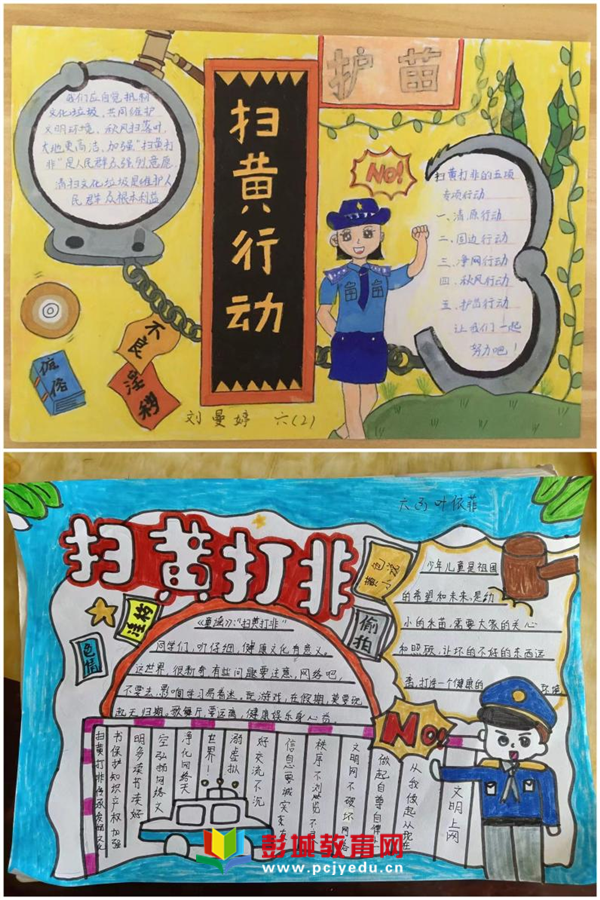 护苗
扫黄行动
我们应自觉抵制
文化垃圾，共同维护
文明环境，秋风扫落叶，
大地更高洁，加强“扫黄打
非”是人民群众强烈意愿
清扫文化垃圾是维护人
民群众根本利益
NO!
扫黄打非的五项
专项行动
一、清源行动
二、固边行动
三、净网行动
四、秋风行动
五、护苗行动
让我们一起
努力吧！
不良
淫秽
低俗
刘曼婷 六(2)
叶依菲
扫黄打非
淫秽
色情
偷拍
“扫黄打非”
同学们，听仔细，健康文化有意义。
这世界，很新奇有些问题要注意，网络吧，
不要去，影响学习易着迷，玩游戏，
健康娱乐身心益
少年儿童是祖国
的希望和未来，是幼
小的禾苗，需要大家的关心
和照顾，让坏的不好的东西远
离，打造一个健康的环境
NO!
文明上网
从我做起从现在
做起自尊自律
文明网不破坏网络
秩序不浏览不良
信息要诚实友
好交流不沉
溺虚拟
世界！
净化网络天
空弘扬网络文
明多读书读好
书保护知识产权加强
彭城教育网
www.pcjyedu.cn